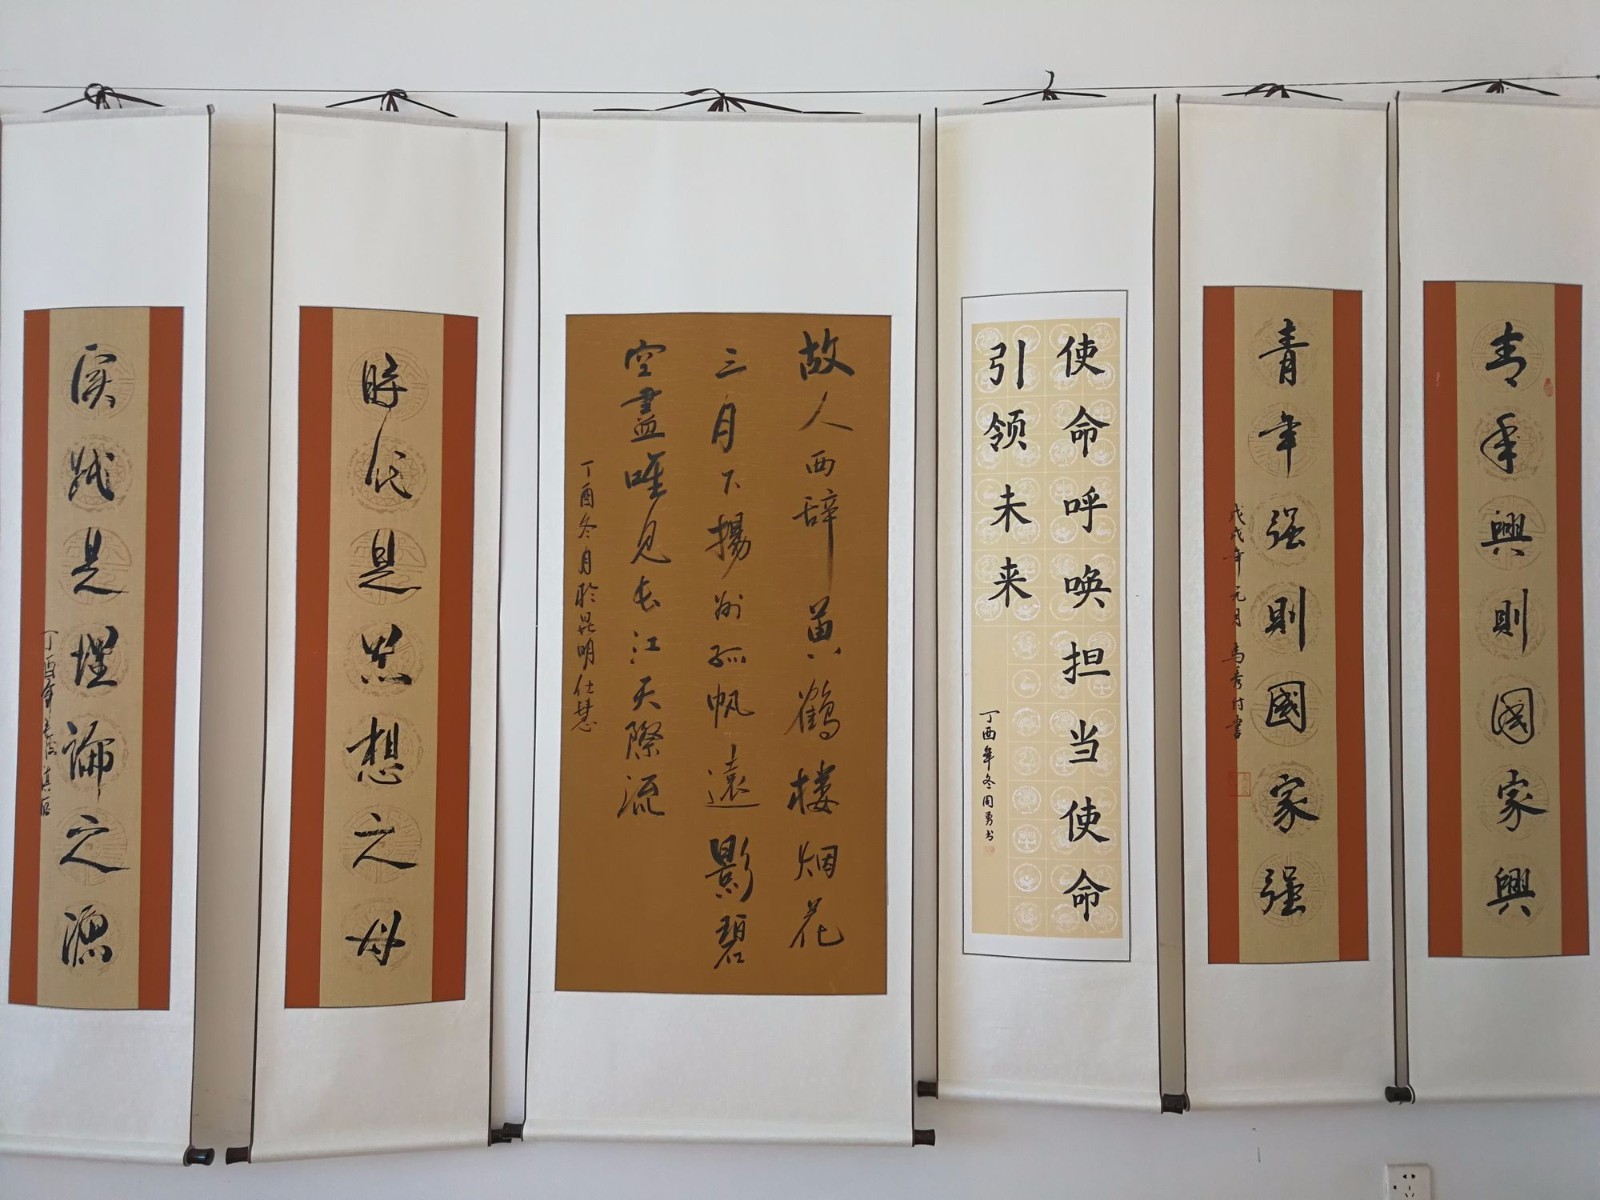 青年興則國家興
青年强則國家强
戊戌年元月馬秀村書
使命呼唤担当使命
引领未来
丁酉年冬周勇书
故人西辞黄鶴楼烟花
三月下揚州孤帆遠影碧
空盡唯見长江天際流
丁酉冬月於昆明仕慧
時代是思想之母
实践是理論之源
丁酉年